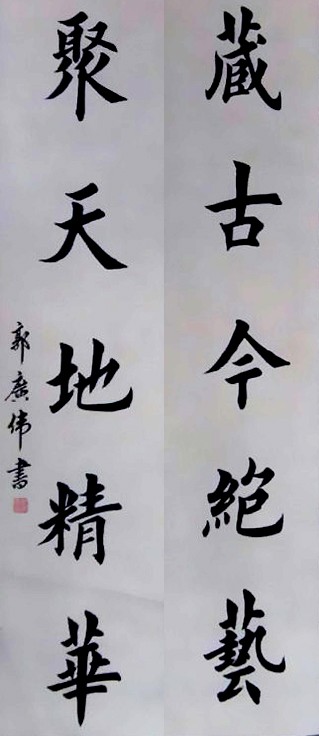 藏古今絕藝
聚天地精華
郭廣伟書